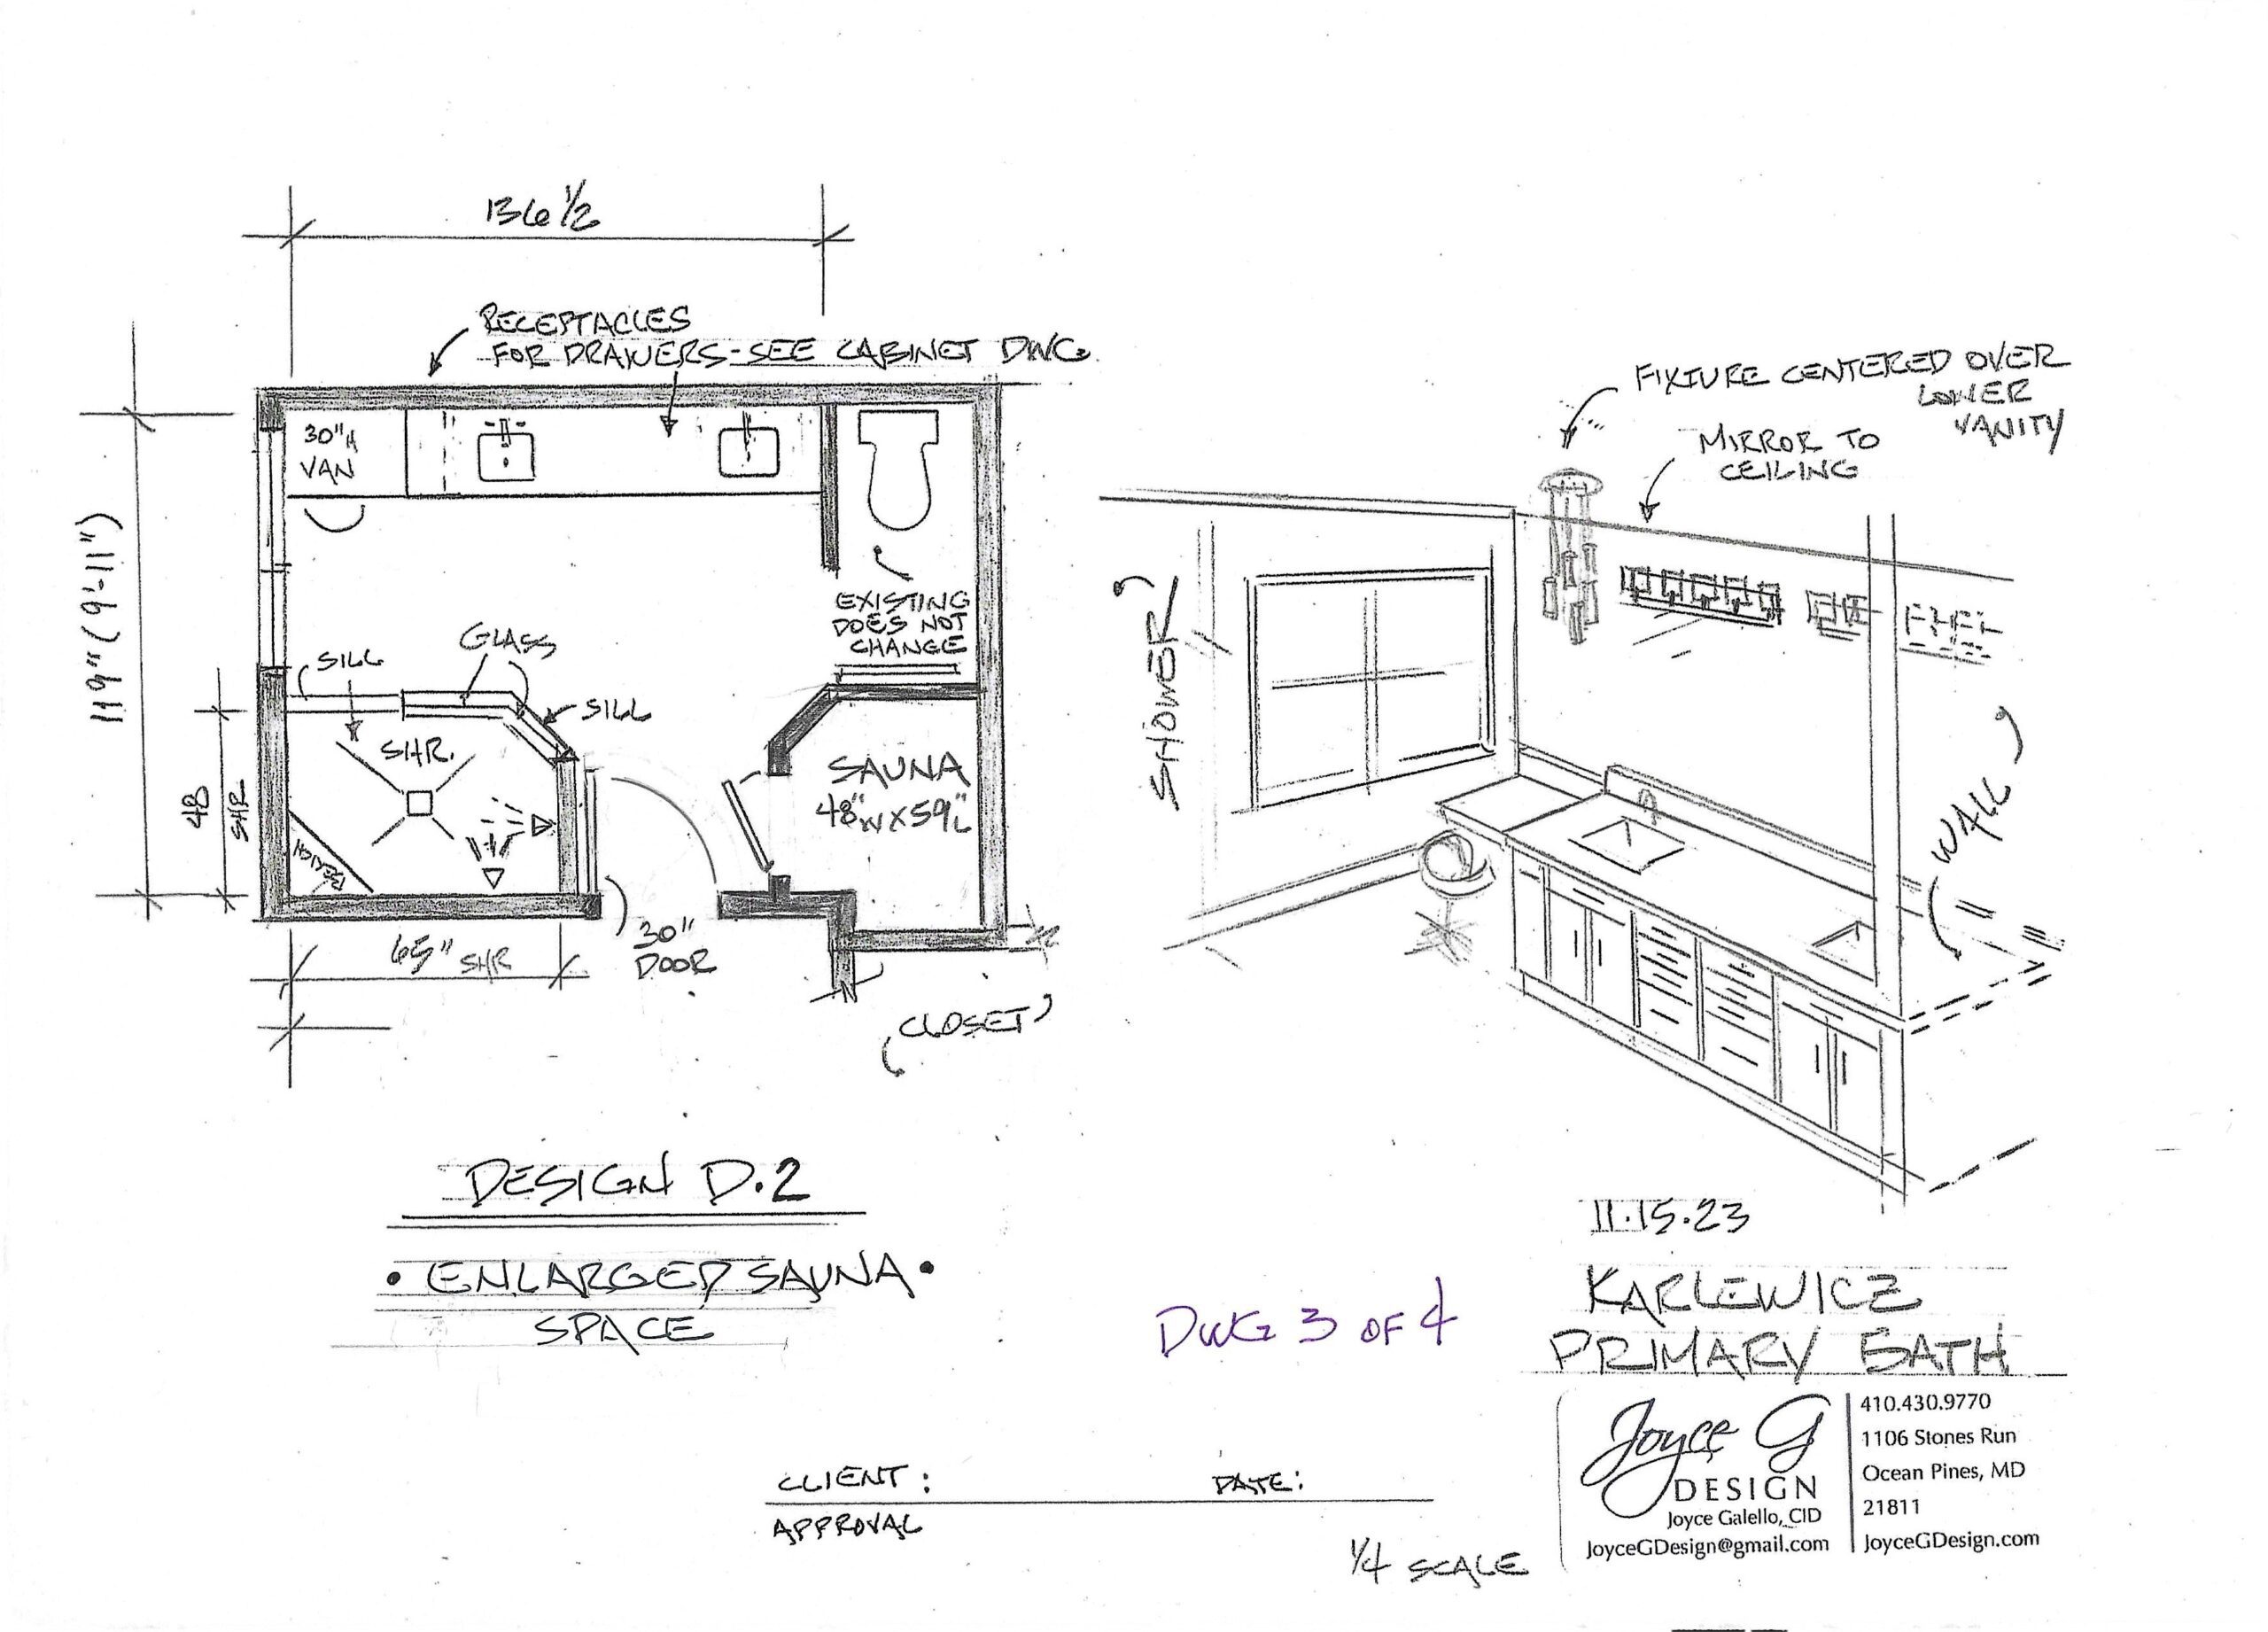 136 1/2
RECEPTACLES
FOR DRAWERS-SEE CABINET DWG.
30"H
VAN
119" (9'-11")
EXISTING
DOES NOT
CHANGE
GLASS
SILL
SILL
SHR.
48
SHR
BENCH
SAUNA
48"W X 59"L
65" SHR
30"
DOOR
CLOSET
FIXTURE CENTERED OVER
LOWER
VANITY
MIRROR TO
CEILING
SHOWER
WALL
DESIGN D.2
• ENLARGED SAUNA •
SPACE
DWG 3 OF 4
11.15.23
KARLEWICZ
PRIMARY BATH
Joyce G
DESIGN
Joyce Galello, CID
JoyceGDesign@gmail.com
410.430.9770
1106 Stones Run
Ocean Pines, MD
21811
JoyceGDesign.com
CLIENT: DATE:
APPROVAL
1/4 SCALE